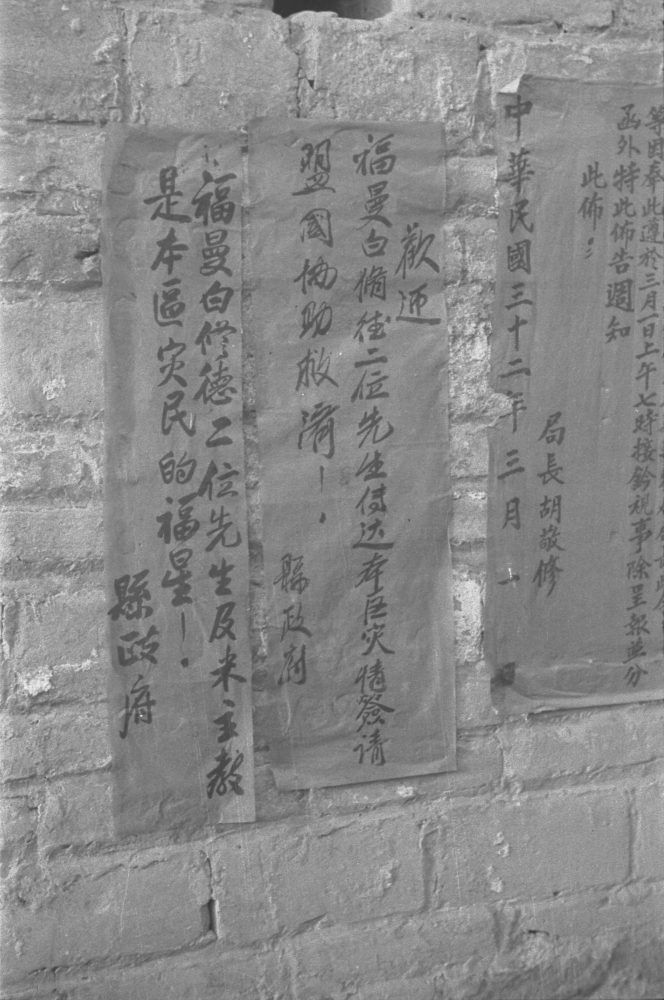 等因奉此遵於三月一日上午七時接鈐視事除呈報並分
函外特此佈告週知
此佈
局長胡敬修
中華民國三十二年三月一日
歡迎
福曼白脩德二位先生傳达本区灾情簽请
盟國协助救濟！
縣政府
福曼白修德二位先生及米主教
是本區灾民的福星！
縣政府